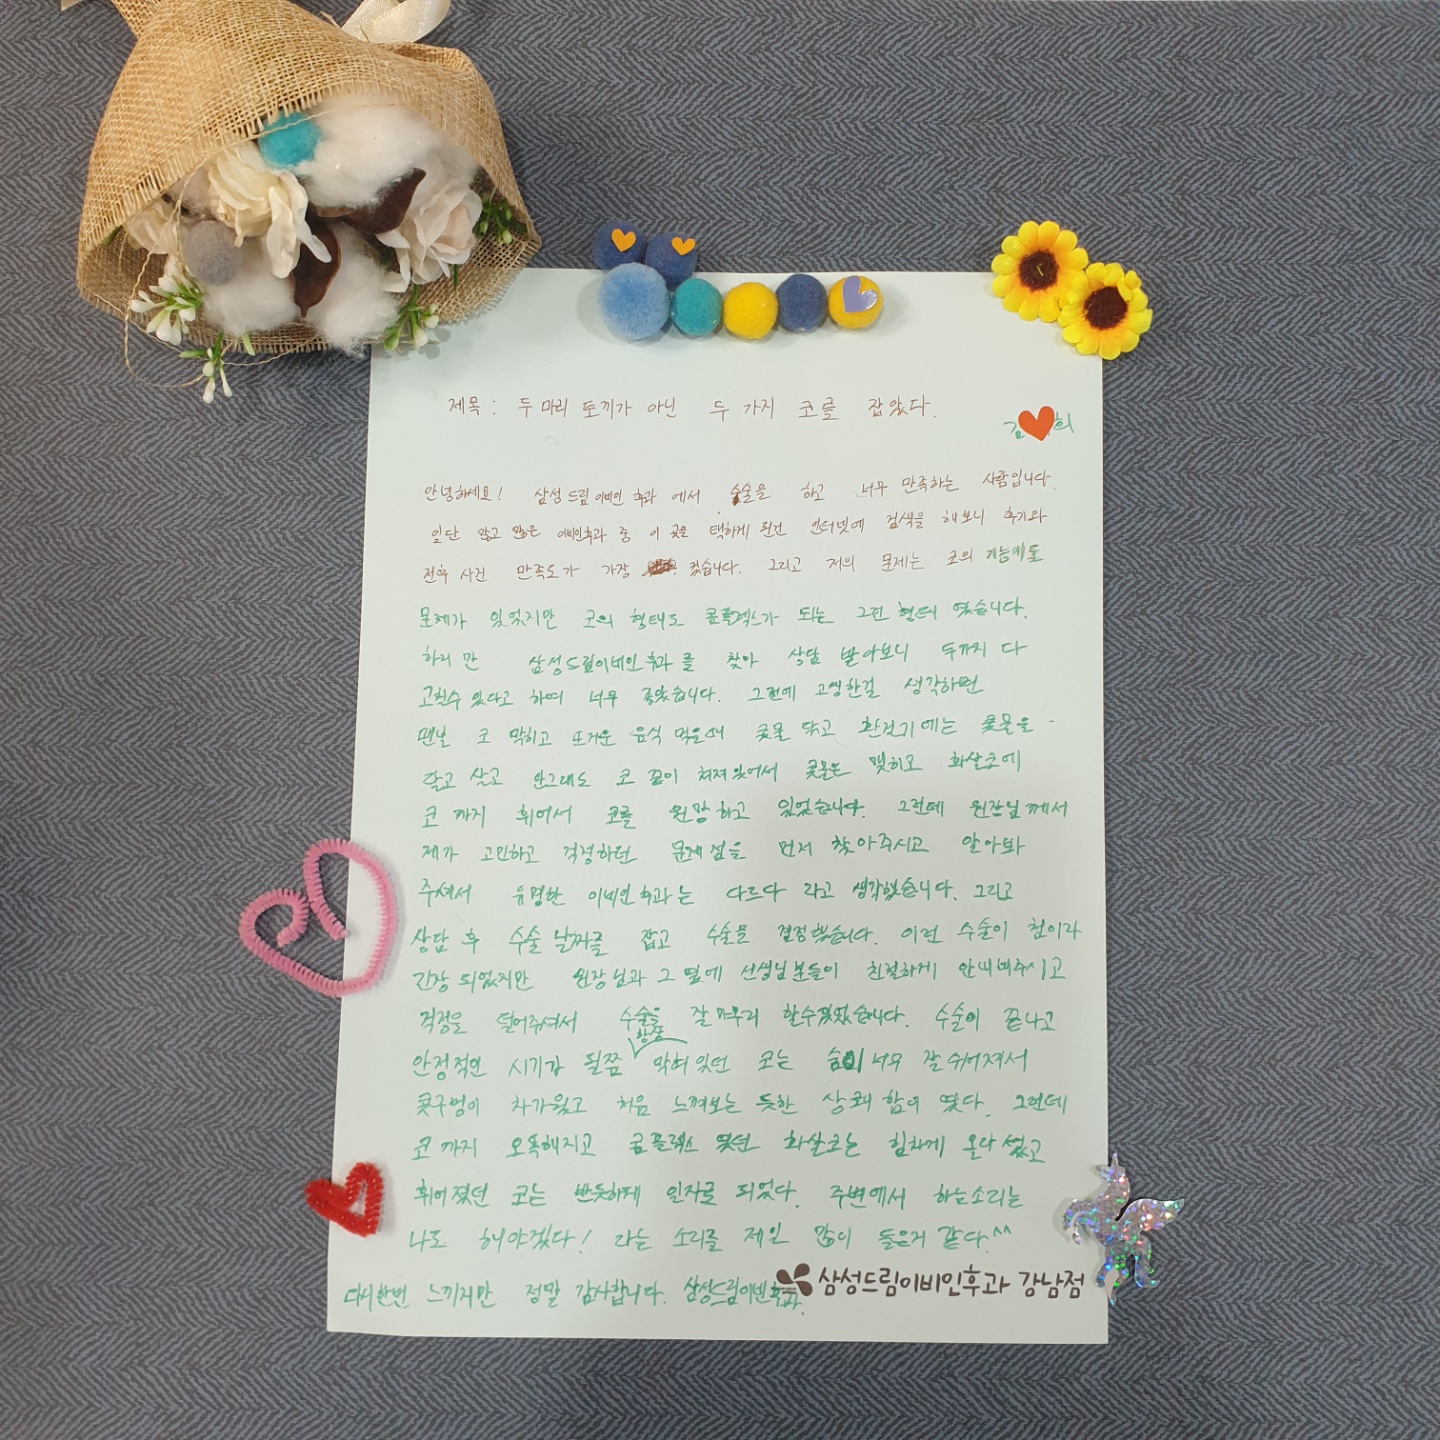 제목: 두 마리 토끼가 아닌 두 가지 코를 잡았다.
김 희
안녕하세요! 삼성드림이비인후과에서 수술을 하고 너무 만족하는 사람입니다.
일단 많고 많은 이비인후과 중 이 곳을 택하게 된건 인터넷에 검색을 해보니 후기와
전후 사진 만족도가 가장 컸습니다. 그리고 저의 문제는 코의 기능에도
문제가 있었지만 코의 형태도 콤플렉스가 되는 그런 형태 였습니다.
하지만 삼성드림이비인후과를 찾아 상담 받아보니 두가지 다
고칠수 있다고 하여 너무 좋았습니다. 그런데 고생한걸 생각하면
맨날 코 막히고 뜨거운 음식 먹을때 콧물 닦고 환절기에는 콧물을
달고 살고 안그래도 코 끝이 쳐져있어서 콧물은 맺히고 화살코에
코 까지 휘어서 코를 원망하고 있었습니다. 그런데 원장님께서
제가 고민하고 걱정하던 문제점을 먼저 찾아주시고 알아봐
주셔서 유명한 이비인후과는 다르다 라고 생각했습니다. 그리고
상담 후 수술 날짜를 잡고 수술을 결정했습니다. 이런 수술이 첨이라
긴장 되었지만 원장님과 그 옆에 선생님분들이 친절하게 안내해주시고
걱정을 덜어주셔서 수술을 잘 마무리 할수있었습니다. 수술이 끝나고
안정적인 시기가 될쯤 항상 막혀있던 코는 숨이 너무 잘 쉬어져서
콧구멍이 차가웠고 처음 느껴보는 듯한 상쾌함이 였다. 그런데
코 까지 오똑해지고 콤플렉스 였던 화살코는 힘차게 올라섰고
휘어졌던 코는 반듯하게 일자로 되었다. 주변에서 하는소리는
나도 해야겠다! 라는 소리를 제일 많이 들은거 같다.^^
다시한번 느끼지만 정말 감사합니다. 삼성드림이비인후과.
삼성드림이비인후과 강남점